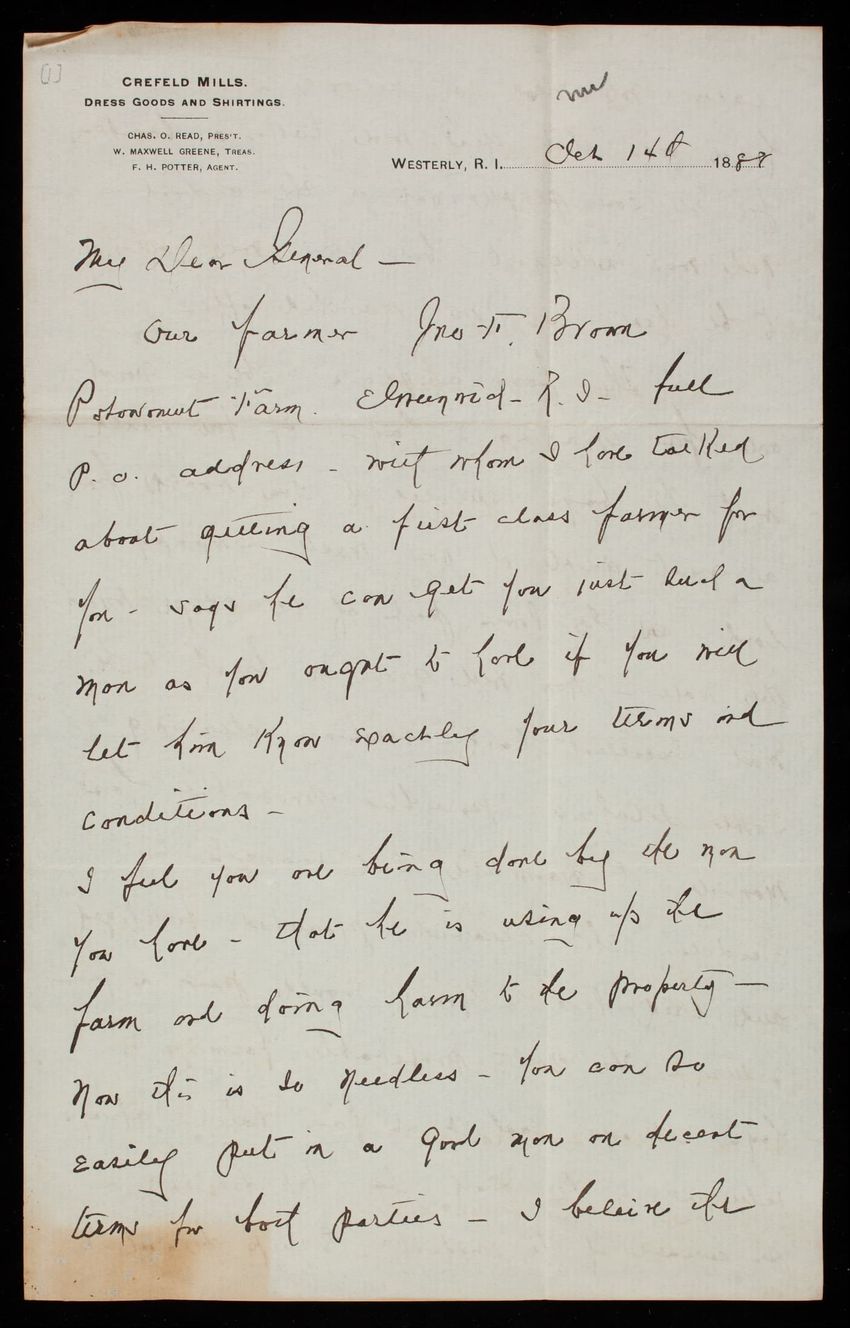 [1]
CREFELD MILLS.
DRESS GOODS AND SHIRTINGS.
CHAS. O. READ, PRES'T.
W. MAXWELL GREENE, TREAS.
F. H. POTTER, AGENT.
WESTERLY, R. I. Oct 14th 1887
My Dear General —
Our farmer Jno F. Brown
Potowomut Farm. E Greenwich - R. I - full
P. O. address - with whom I have talked
about getting a first class farmer for
you - says he can get you just such a
man as you ought to have if you will
let him know exactly your terms and
conditions -
I feel you are being done by the man
you have - that he is using up the
farm and doing harm to the property —
Now this is so needless - you can so
easily put in a good man on decent
terms for both parties - I beleive the